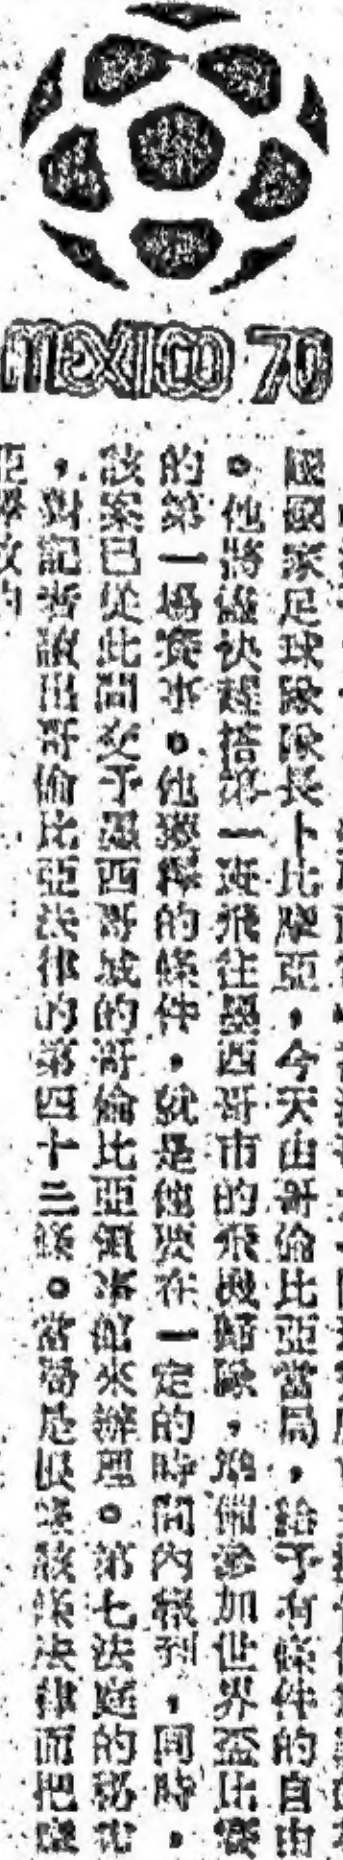 MEXICO 70
國國家足球隊隊長卜比摩亞，今天由哥倫比亞當局，給予有條件的自由
。他將儘快趕搭第一班飛往墨西哥市的飛機歸隊，準備參加世界盃比賽
的第一場賽事。他獲釋的條件，就是他要在一定的時間內報到，同時，
該案已從此間交予墨西哥城的哥倫比亞領事館來辦理。第七法庭的秘書
，對記者說出哥倫比亞法律的第四十三條。當局是根據該條法律而把摩
亞釋放的